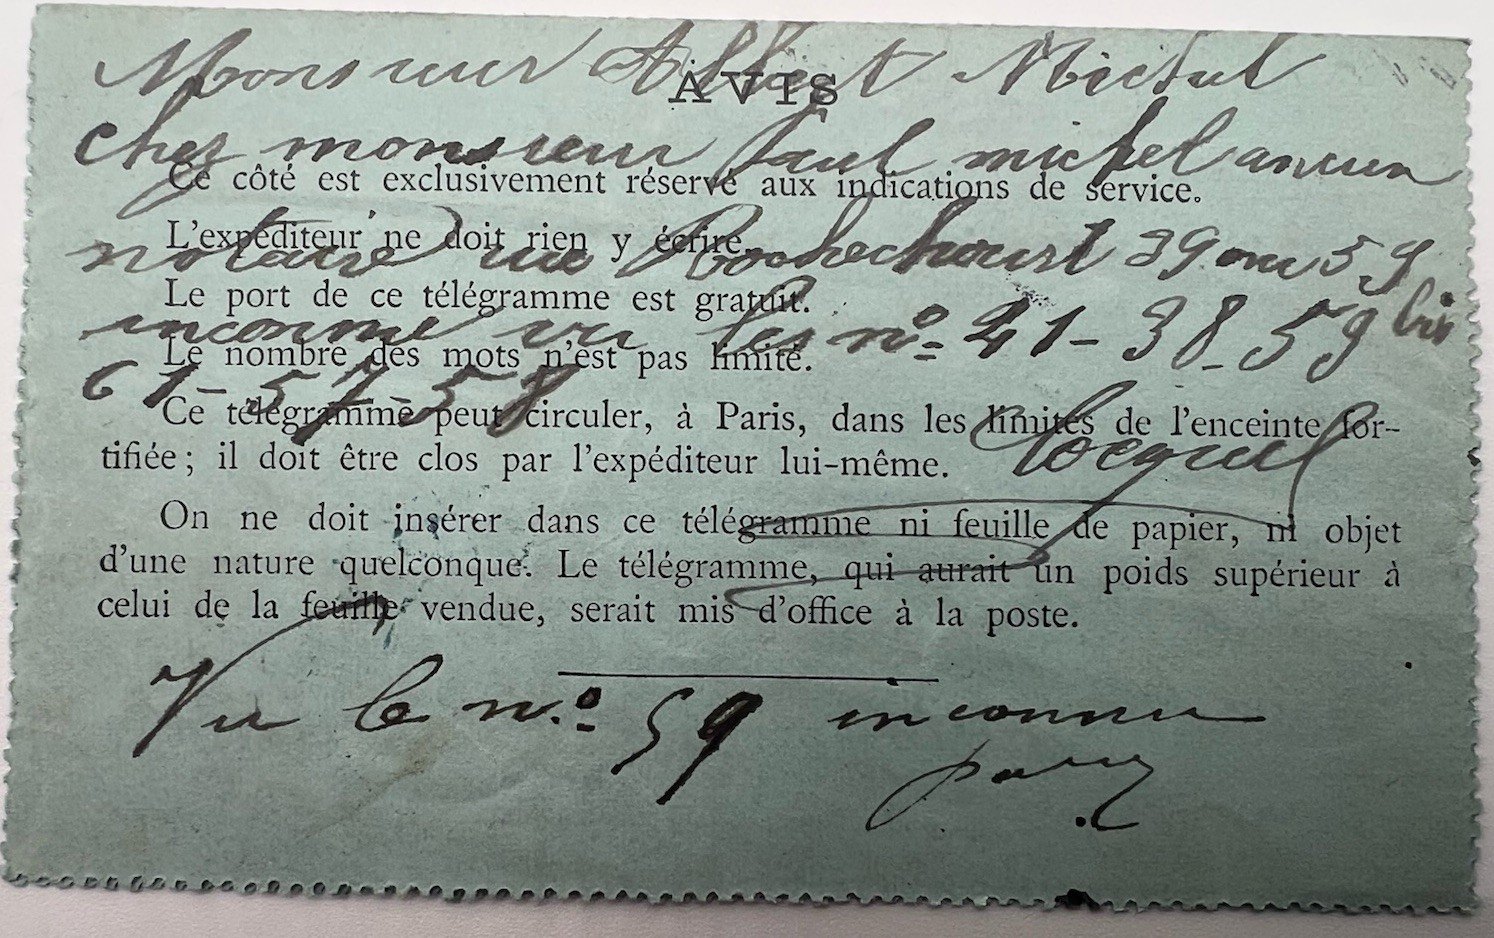 Monsieur Albert Michel
AVIS
chez monsieur Paul michel ancien
Ce côté est exclusivement réservé aux indications de service.
L'expéditeur ne doit rien y écrire.
notaire rue Rochechouart 39 ou 59
Le port de ce télégramme est gratuit.
inconnu vu les nº 41-38-59 bis
Le nombre des mots n'est pas limité.
61-57-58
Ce télégramme peut circuler, à Paris, dans les limites de l'enceinte for-
tifiée; il doit être clos par l'expéditeur lui-même.
On ne doit insérer dans ce télégramme ni feuille de papier, ni objet
d'une nature quelconque. Le télégramme, qui aurait un poids supérieur à
celui de la feuille vendue, serait mis d'office à la poste.
Vu le nº 59 inconnu